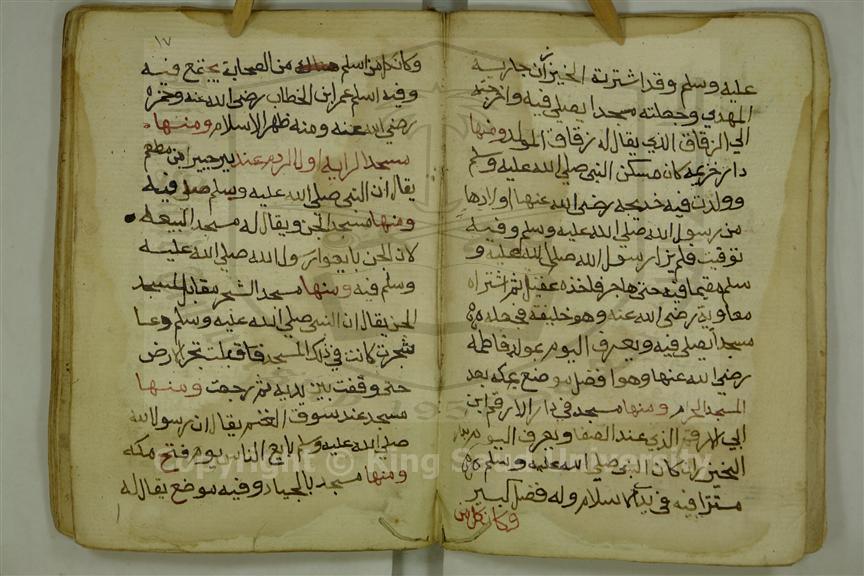 عليه وسلم وقد اشترته الخيزران جارية
المهدي وجعلته مسجدا يصلى فيه واخرجته
الي الزقاق الذي يقال له زقاق المولد ومنها
دار خزيمه كان مسكن النبي صلي الله عليه وسلم
وولدت فيه خديجه رضي الله عنها اولادها
من رسول الله صلي الله عليه وسلم وفيه
توفيت فلم يزل رسول الله صلي الله عليه و
سلم مقيما فيه حتى هاجر فاخذه عقيل ثم اشتراه
معاوية رضي الله عنه وهو خليفة فجعله
مسجدا يصلى فيه ويعرف اليوم بمولد فاطمة
رضي الله عنها وهو افضل موضع بمكه بعد
المسجد الحرام ومنها مسجد في دار الارقم ابن
ابي الارقم الذي عند الصفا ويعرف اليوم
الخيزران كان النبي صلي الله عليه وسلم
مستترا فيه في بدا الاسلام وله فضل كبير
وكان كل من
١٧
وكان كل من اسلم من الصحابة يجتمع فيه
وفيه اسلم عمر ابن الخطاب رضي الله عنه وحمزه
رضي الله عنه ومنه ظهر الاسلام ومنها
مسجد الرايه اول الردم عند بير جبير ابن مطعم
يقال ان النبي صلي الله عليه وسلم صلي فيه
ومنها مسجد الجن ويقال له مسجد البيعه
لان الجن بايعوا رسول الله صلي الله عليه
وسلم فيه ومنها مسجد الشجر مقابل المسجد
الجن يقال ان النبي صلي الله عليه وسلم دعا
شجرة كانت في ذلك المسجد فاقبلت تجر الارض
حتى وقفت بين يديه ثم رجعت ومنها
مسجد عند سوق الغنم يقال ان رسول الله
صلي الله عليه وسلم بايع الناس يوم فتح مكه
ومنها مسجد بالجياد وفيه موضع يقال له
Copyright © King Saud University